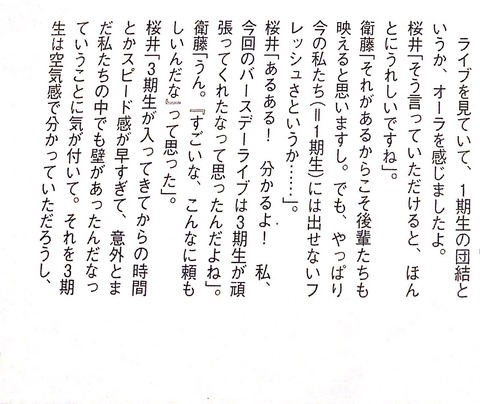 ライブを見ていて、1期生の団結と
いうか、オーラを感じましたよ。
桜井「そう言っていただけると、ほん
とにうれしいですね」。
衛藤「それがあるからこそ後輩たちも
映えると思いますし。でも、やっぱり
今の私たち(=1期生)には出せないフ
レッシュさというか……」。
桜井「あるある! 分かるよ! 私、
今回のバースデーライブは3期生が頑
張ってくれたなって思ったんだよね」。
衛藤「うん。『すごいな、こんなに頼も
しいんだな』って思った」。
桜井「3期生が入ってきてからの時間
とかスピード感が早すぎて、意外とま
だ私たちの中でも壁があったんだなっ
ていうことに気が付いて。それを3期
生は空気感で分かっていただろうし、